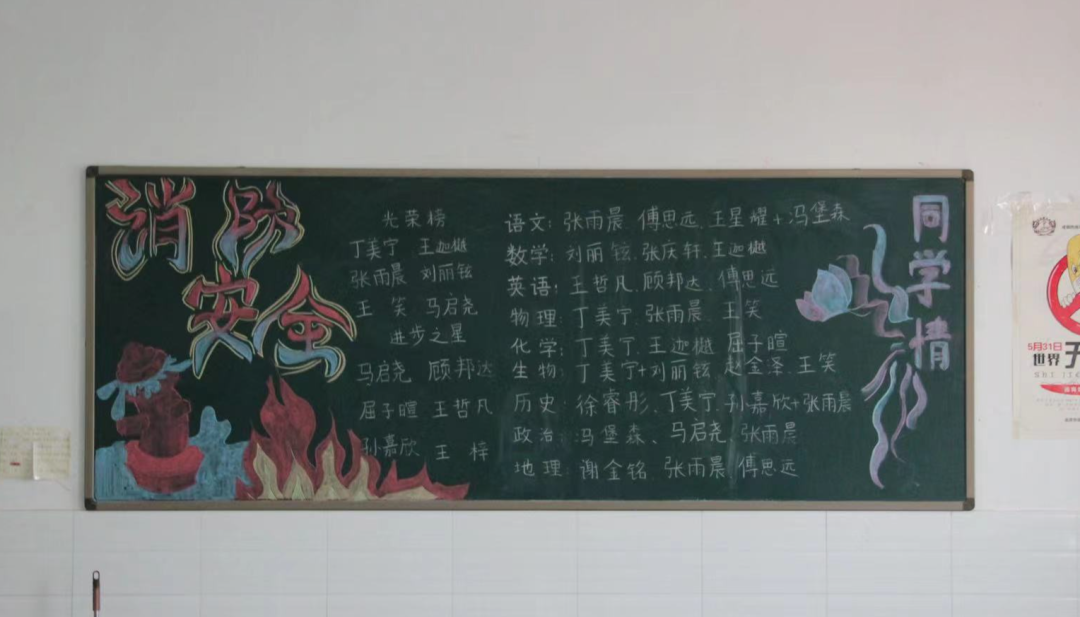 消防
安全
光荣榜
丁美宁 王迦樾
张雨晨 刘丽铉
王笑 马启尧
进步之星
马启尧 顾邦达
屈子暄 王哲凡
孙嘉欣 王梓
语文:张雨晨、傅思远、王星耀+冯堡森
数学:刘丽铉、张庆轩、王迦樾
英语:王哲凡、顾邦达、傅思远
物理:丁美宁、张雨晨、王笑
化学:丁美宁、王迦樾、屈子暄
生物:丁美宁+刘丽铉、赵金泽、王笑
历史:徐睿彤、丁美宁、孙嘉欣+张雨晨
政治:冯堡森、马启尧、张雨晨
地理:谢金铭、张雨晨、傅思远
同学情
5月31日
世界无